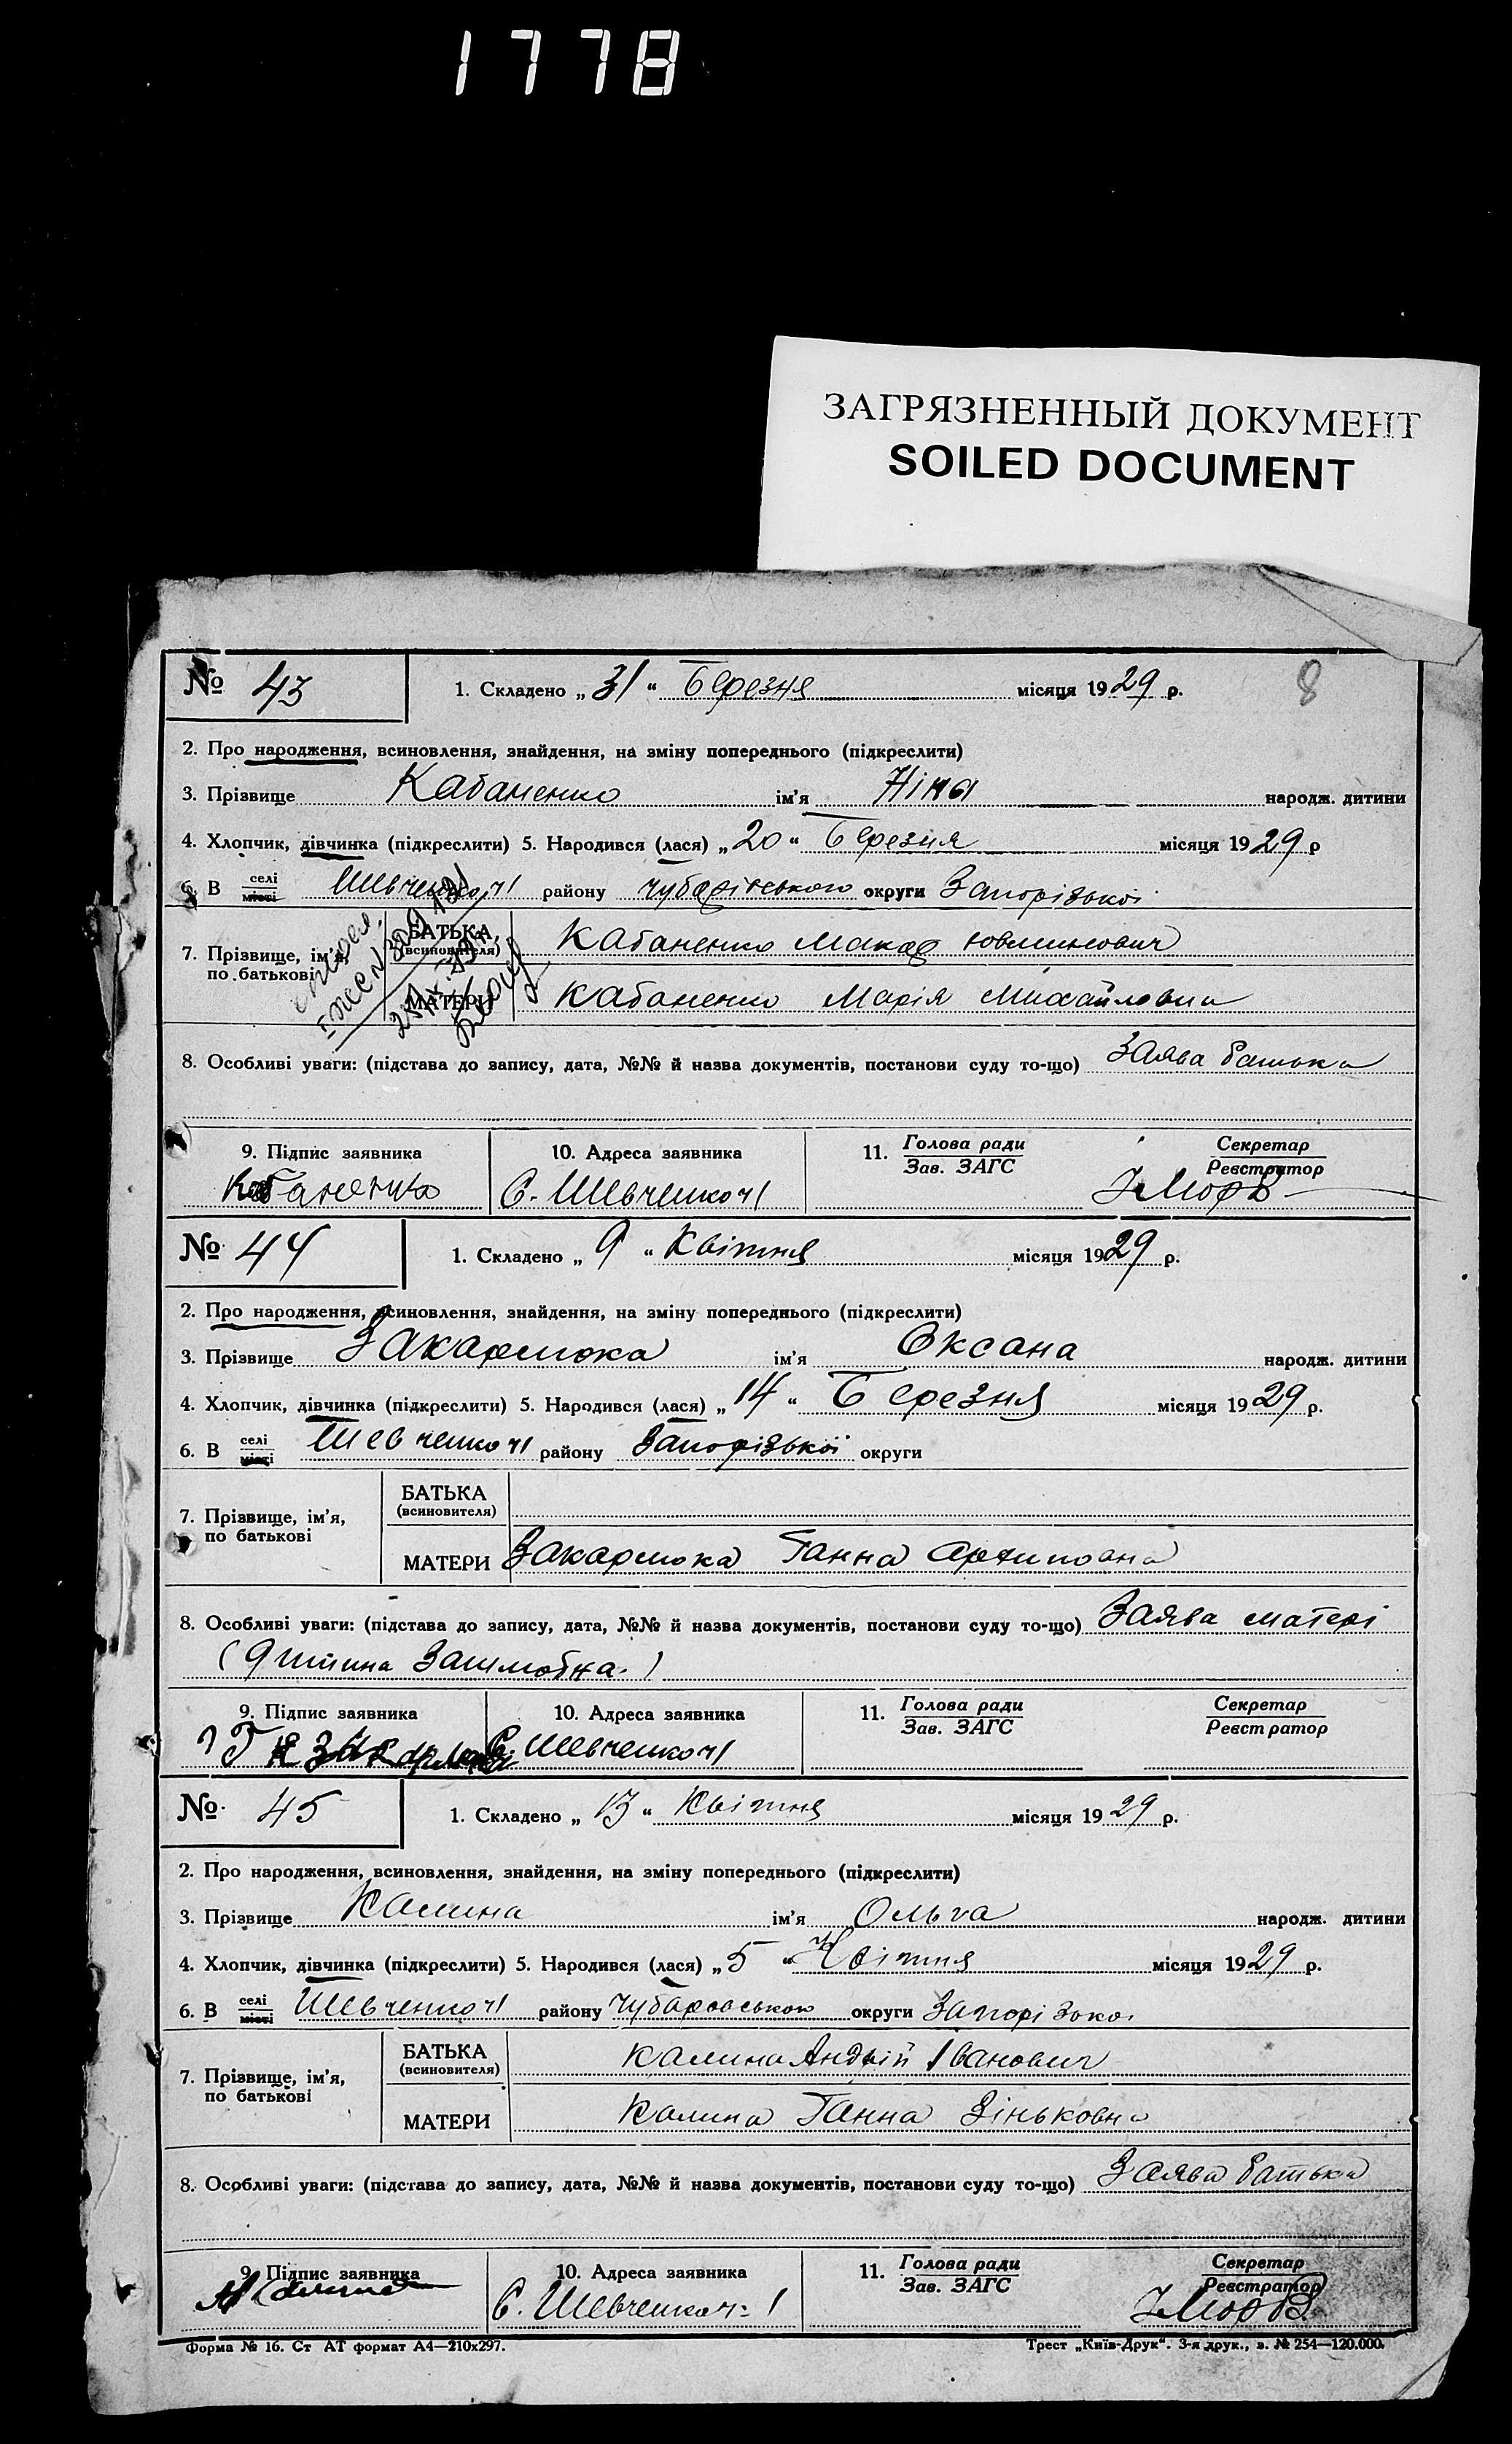 1778
ЗАГРЯЗНЕННЫЙ ДОКУМЕНТ
SOILED DOCUMENT
№ 43 1. Складено „31“ Березня місяця 1929 р. 8
2. Про народження, всиновлення, знайдення, на зміну попереднього (підкреслити)
3. Прізвище Кабаненко ім'я Ніна народж. дитини
4. Хлопчик, дівчинка (підкреслити) 5. Народився (лася) „20“ Березня місяця 1929 р
6. В селі місті Шевченко ч1 району Чубарівського округи Запорізької
7. Прізвище, ім'я, по батькові
БАТЬКА (всиновителя) Кабаненко Макар
МАТЕРИ Кабаненко Марія Михайловна
8. Особливі уваги: (підстава до запису, дата, №№ й назва документів, постанови суду то-що) Заява батька
9. Підпис заявника 10. Адреса заявника 11. Голова ради Зав. ЗАГС Секретар Реєстратор
Кабаненко С. Шевченко ч1
№ 44 1. Складено „9“ Квітня місяця 1929 р.
2. Про народження, всиновлення, знайдення, на зміну попереднього (підкреслити)
3. Прізвище Закарлюка ім'я Оксана народж. дитини
4. Хлопчик, дівчинка (підкреслити) 5. Народився (лася) „14“ Березня місяця 1929 р.
6. В селі місті Шевченко ч1 району Запорізької округи
7. Прізвище, ім'я, по батькові
БАТЬКА (всиновителя)
МАТЕРИ Закарлюка Ганна Архиповна
8. Особливі уваги: (підстава до запису, дата, №№ й назва документів, постанови суду то-що) Заява матері
9. Підпис заявника 10. Адреса заявника 11. Голова ради Зав. ЗАГС Секретар Реєстратор
С. Шевченко ч1
№ 45 1. Складено „13“ Квітня місяця 1929 р.
2. Про народження, всиновлення, знайдення, на зміну попереднього (підкреслити)
3. Прізвище Калина ім'я Ольга народж. дитини
4. Хлопчик, дівчинка (підкреслити) 5. Народився (лася) „5“ Квітня місяця 1929 р.
6. В селі місті Шевченко ч1 району Чубаровського округи Запорізької
7. Прізвище, ім'я, по батькові
БАТЬКА (всиновителя) Калина Андрій Іванович
МАТЕРИ Калина Ганна Зіньковна
8. Особливі уваги: (підстава до запису, дата, №№ й назва документів, постанови суду то-що) Заява батька
9. Підпис заявника 10. Адреса заявника 11. Голова ради Зав. ЗАГС Секретар Реєстратор
Калина С. Шевченко ч: 1
Форма № 16. Ст АТ формат А4—210х297. Трест „Київ-Друк“. 3-я друк., з. № 254—120.000.